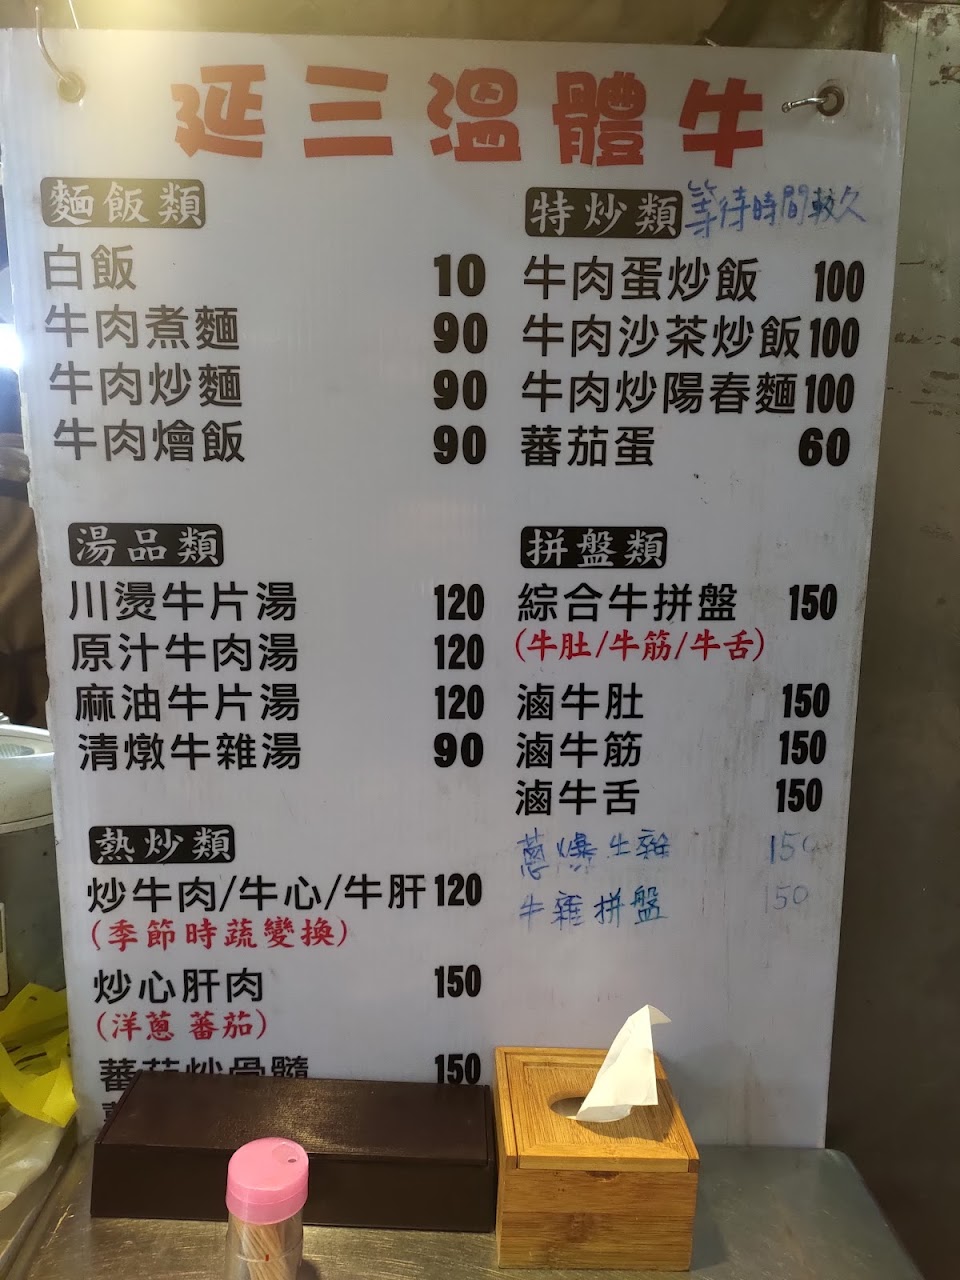 延三溫體牛
麵飯類
白飯 10
牛肉煮麵 90
牛肉炒麵 90
牛肉燴飯 90
湯品類
川燙牛片湯 120
原汁牛肉湯 120
麻油牛片湯 120
清燉牛雜湯 90
熱炒類
炒牛肉/牛心/牛肝 120
(季節時蔬變換)
炒心肝肉 150
(洋蔥 蕃茄)
蕃茄炒骨髓 150
特炒類 等待時間較久
牛肉蛋炒飯 100
牛肉沙茶炒飯 100
牛肉炒陽春麵 100
蕃茄蛋 60
拼盤類
綜合牛拼盤 150
(牛肚/牛筋/牛舌)
滷牛肚 150
滷牛筋 150
滷牛舌 150
蔥爆牛雜 150
牛雜拼盤 150